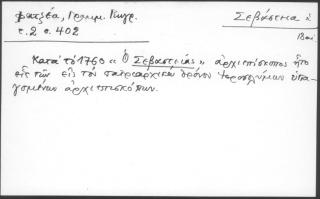 Φατζέα, Γραμμ. Γεωγρ.
τ. 2 σ. 402
Σεβάστεια
Κατὰ τὸ 1760 « Ὁ Σεβαστείας » ἀρχιεπίσκοπος ἦτο
εἷς τῶν εἰς τὸν πατριαρχικὸν θρόνον Ἱεροσολύμων ὑπα-
γομένων ἀρχιεπισκόπων.